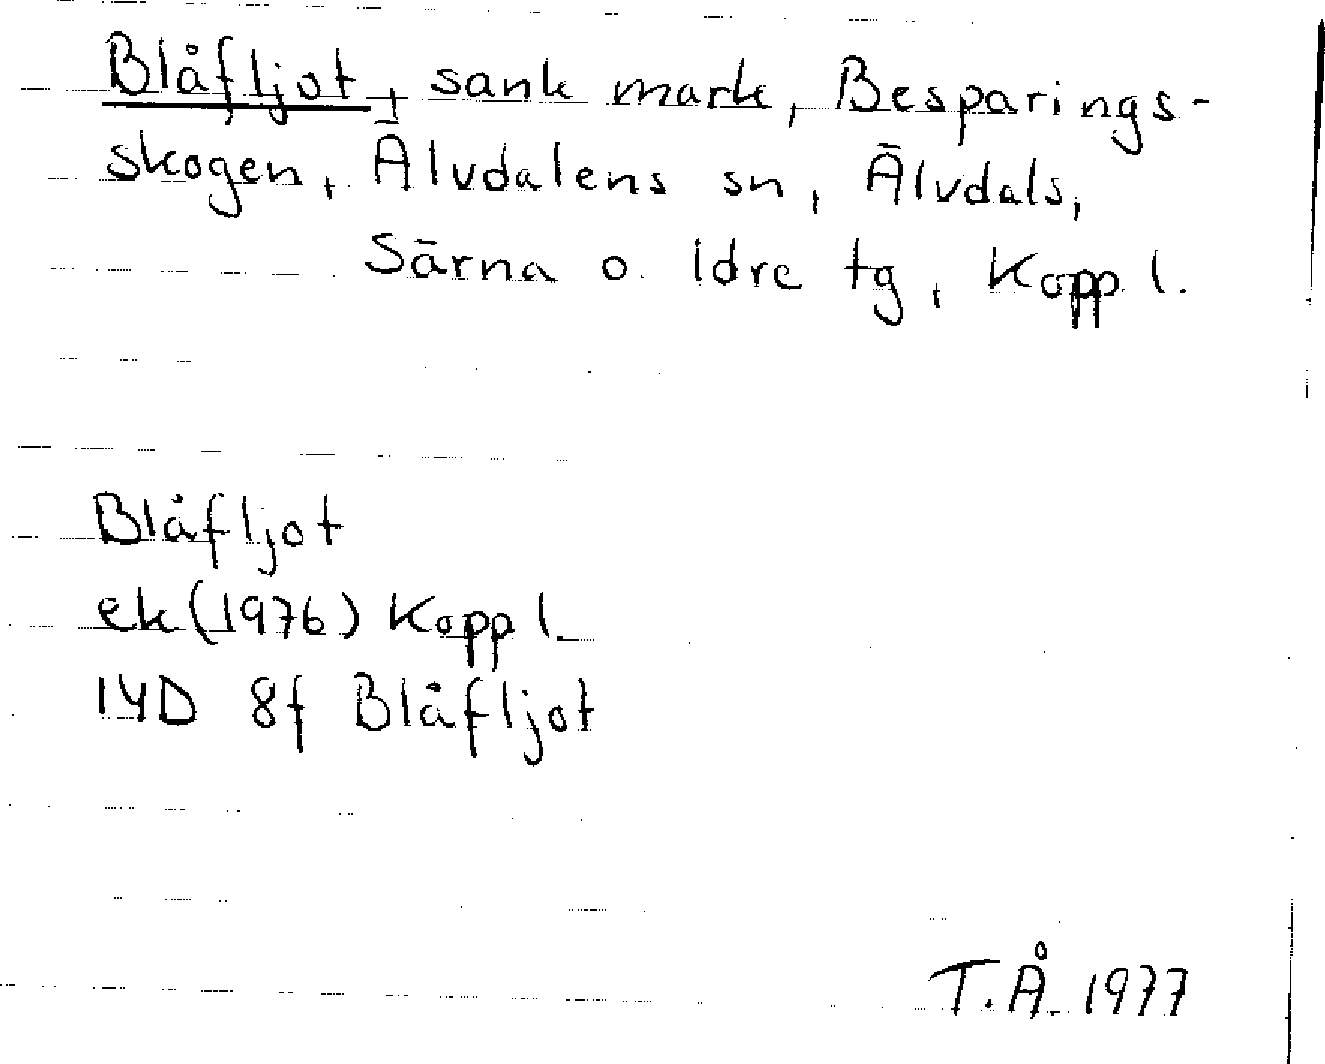 Blåfljot, sank mark, Besparings-
skogen, Älvdalens sn, Älvdals,
Särna o. Idre tg, Kopp l.
Blåfljot
ek (1976) Kopp l.
14D 8f Blåfljot
T.Å. 1977